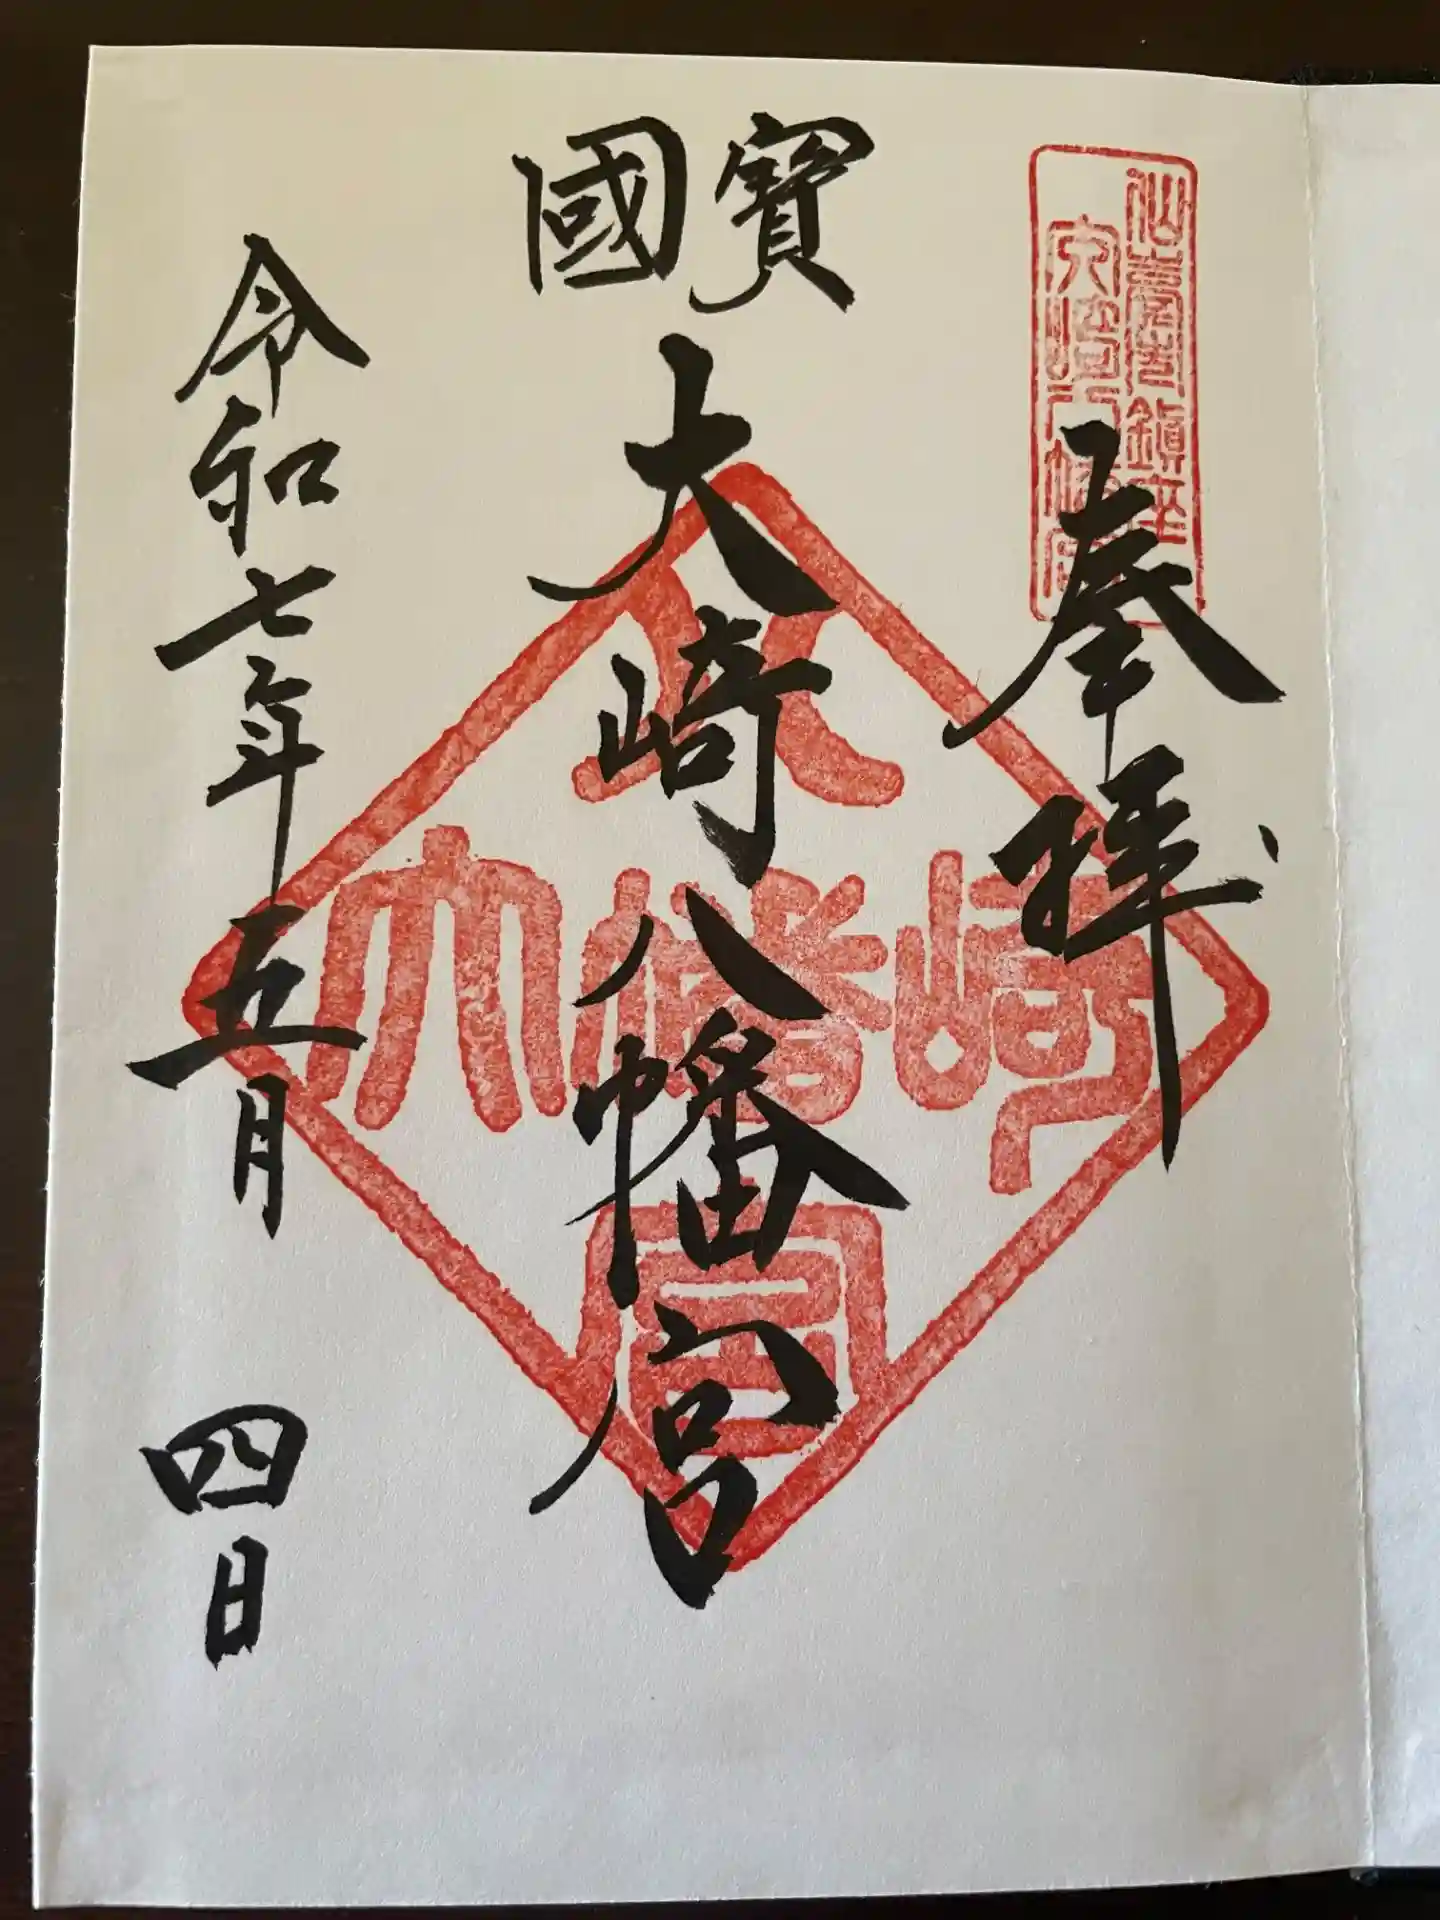 奉拝
國寳
大崎八幡宮
令和七年五月四日
仙臺总鎮座
大崎八幡宮
大崎八幡宮